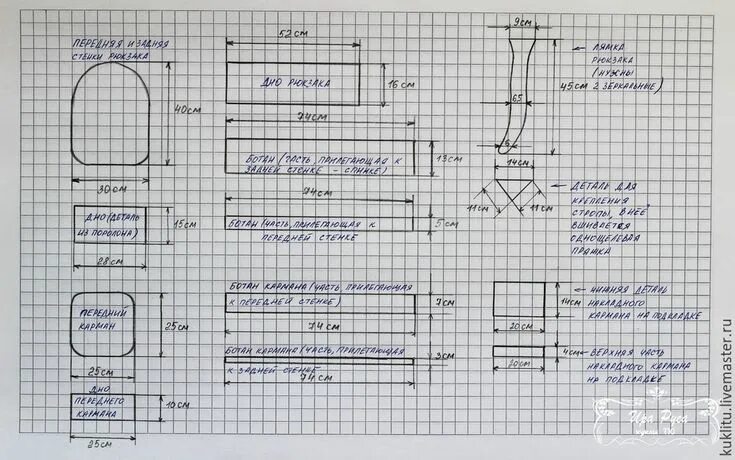 ПЕРЕДНЯЯ И ЗАДНЯЯ
СТЕНКИ РЮКЗАКА
40см
30см
ДНО (ДЕТАЛЬ
ИЗ ПОРОЛОНА)
15см
28см
ПЕРЕДНИЙ
КАРМАН
25см
25см
ДНО
ПЕРЕДНЕГО
КАРМАНА
10см
25см
52см
ДНО РЮКЗАКА
16см
74см
БОТАН (ЧАСТЬ, ПРИЛЕГАЮЩАЯ К
ЗАДНЕЙ СТЕНКЕ - СПИНКЕ)
13см
74см
БОТАН (ЧАСТЬ, ПРИЛЕГАЮЩАЯ К
ПЕРЕДНЕЙ СТЕНКЕ
5см
БОТАН КАРМАНА (ЧАСТЬ, ПРИЛЕГАЮЩАЯ
К ПЕРЕДНЕЙ СТЕНКЕ)
7см
74см
БОТАН КАРМАНА (ЧАСТЬ, ПРИЛЕГАЮЩАЯ
К ЗАДНЕЙ СТЕНКЕ
3см
74см
9см
ЛЯМКА
РЮКЗАКА
(НУЖНЫ
2 ЗЕРКАЛЬНЫЕ)
45см
65
6
14см
11см
11см
ДЕТАЛЬ ДЛЯ
КРЕПЛЕНИЯ
СТРОПЫ, В НЕЁ
ВШИВАЕТСЯ
ОДНОЩЕЛЕВАЯ
ПРЯЖКА
НИЖНЯЯ ДЕТАЛЬ
НАКЛАДНОГО
КАРМАНА НА ПОДКЛАДКЕ
14см
20см
4см
ВЕРХНЯЯ ЧАСТЬ
НАКЛАДНОГО КАРМАНА
НА ПОДКЛАДКЕ
20см
Ира Руса
куклы ТД
kuklitu.livemaster.ru